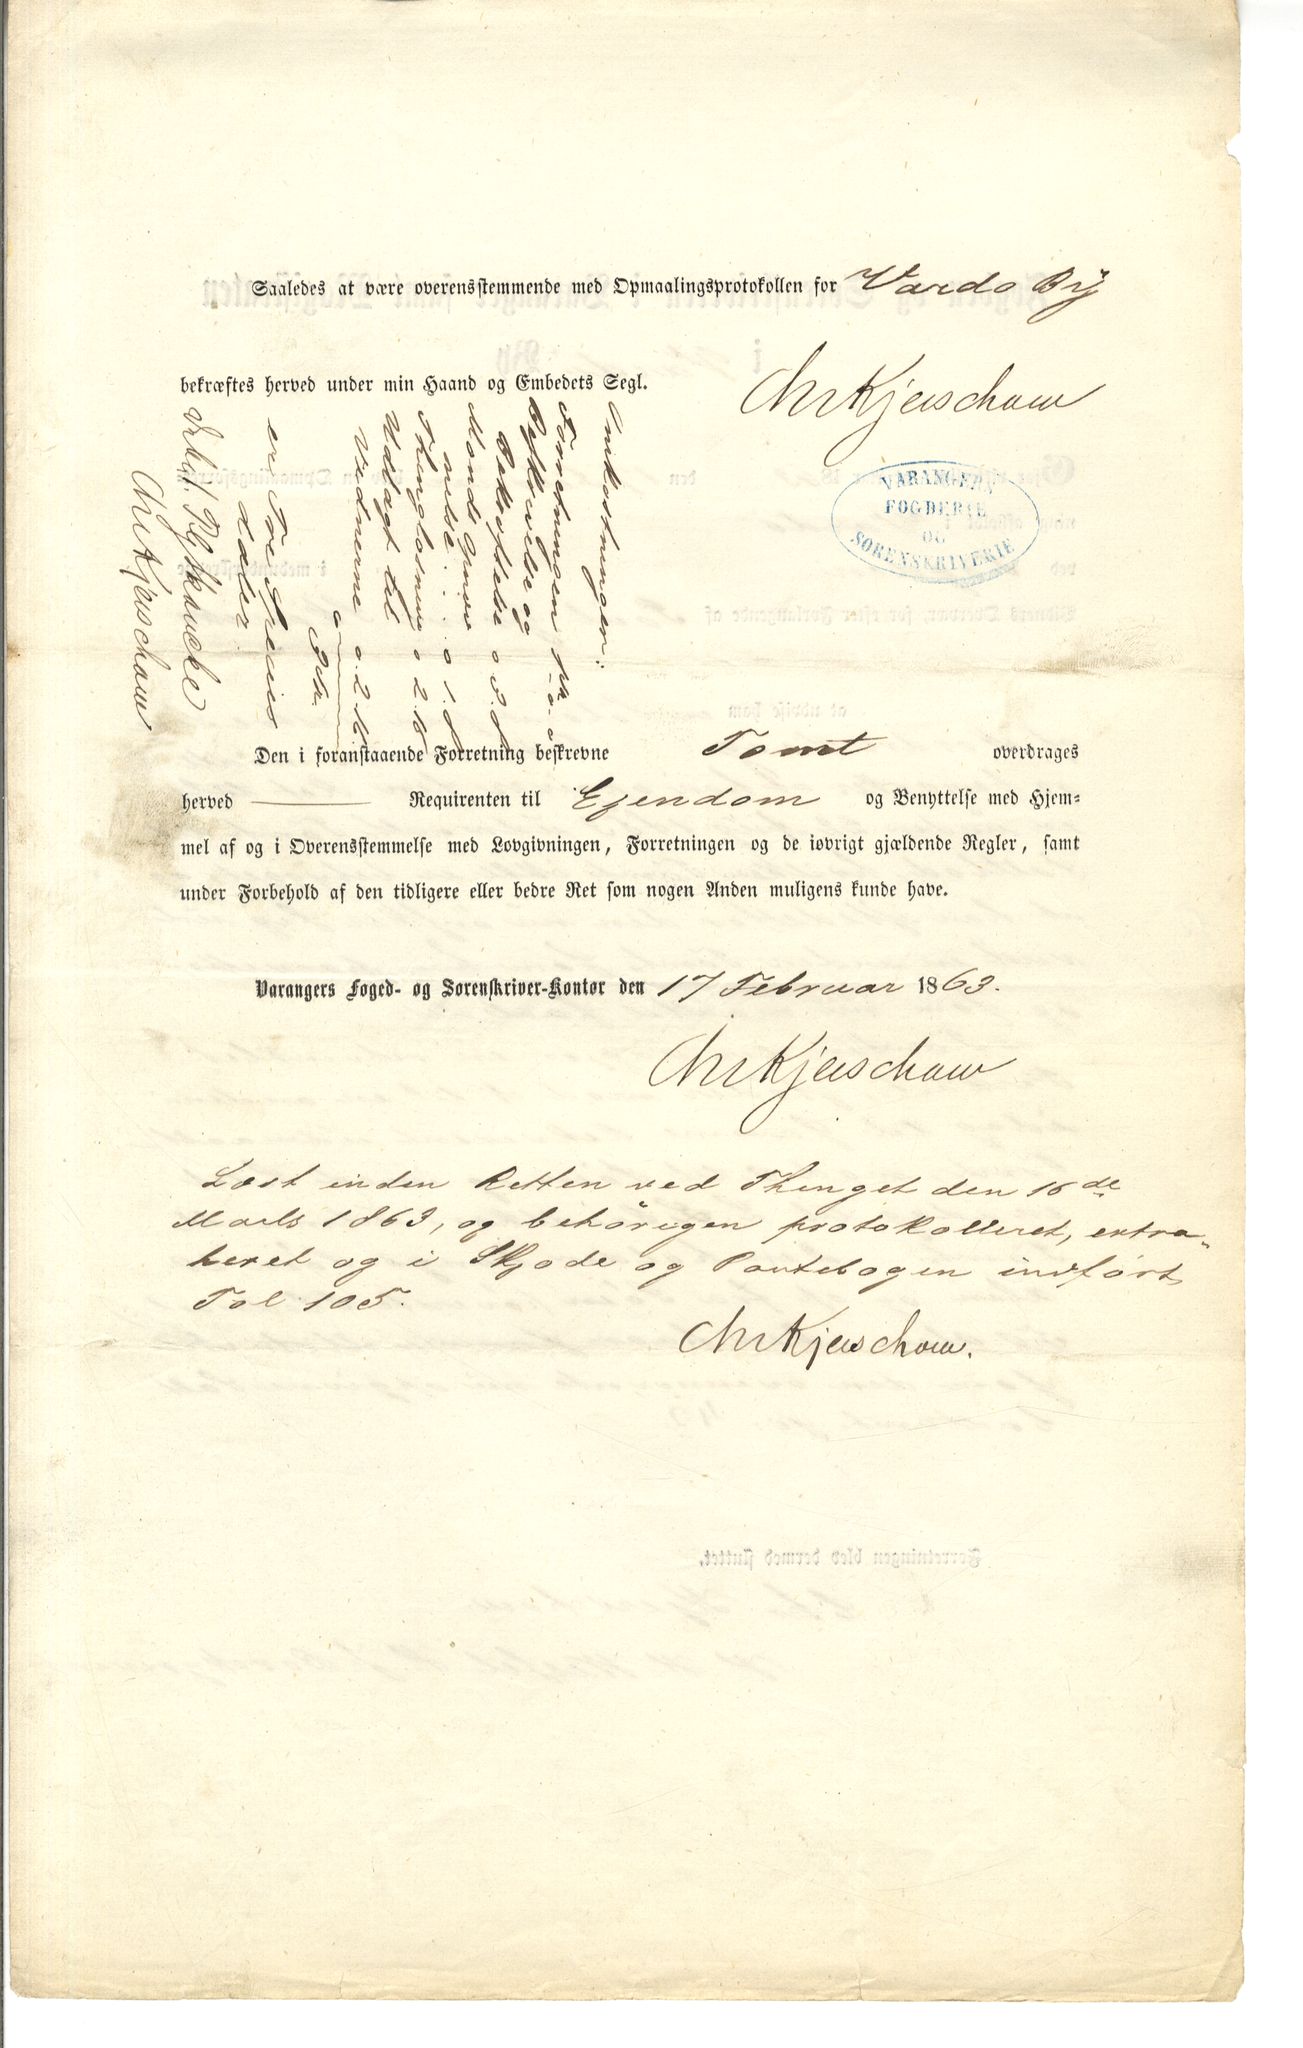 Saaledes at være overensstemmende med Opmaalingsprotokollen for Vardo By
bekræftes herved under min Haand og Embedets Segl.
Chr Kjerschow
VARANGERN
FOGDERIE
OG
SORENSKRIVERIE
Omkostninger:
Forretningen
Beskrivelse og
Bekræftelse 0. 3. 8
Haandgiver
nelse . . . 0. 1. 8
Thinglæsning 0 2. 16
Udlagt til
Vidnerne 0. 2. 16
er Tre Species
daler.
Chr Kjerschow
Den i foranstaaende Forretning beskrevne Tomt overdrages
herved ——— Requirenten til Ejendom og Benyttelse med Hjem-
mel af og i Overensstemmelse med Lovgivningen, Forretningen og de iøvrigt gjældende Regler, samt
under Forbehold af den tidligere eller bedre Ret som nogen Anden muligens kunde have.
Varangers Foged- og Sorenskriver-Kontor den 17 Februar 1863.
Chr Kjerschow
Læst inden Retten ved Thinget den 16de
Marts 1863, og behörigen protokolleret, extra-
heret og i Skjøde og Pantebogen indført
Fol 105.
Chr Kjerschow.